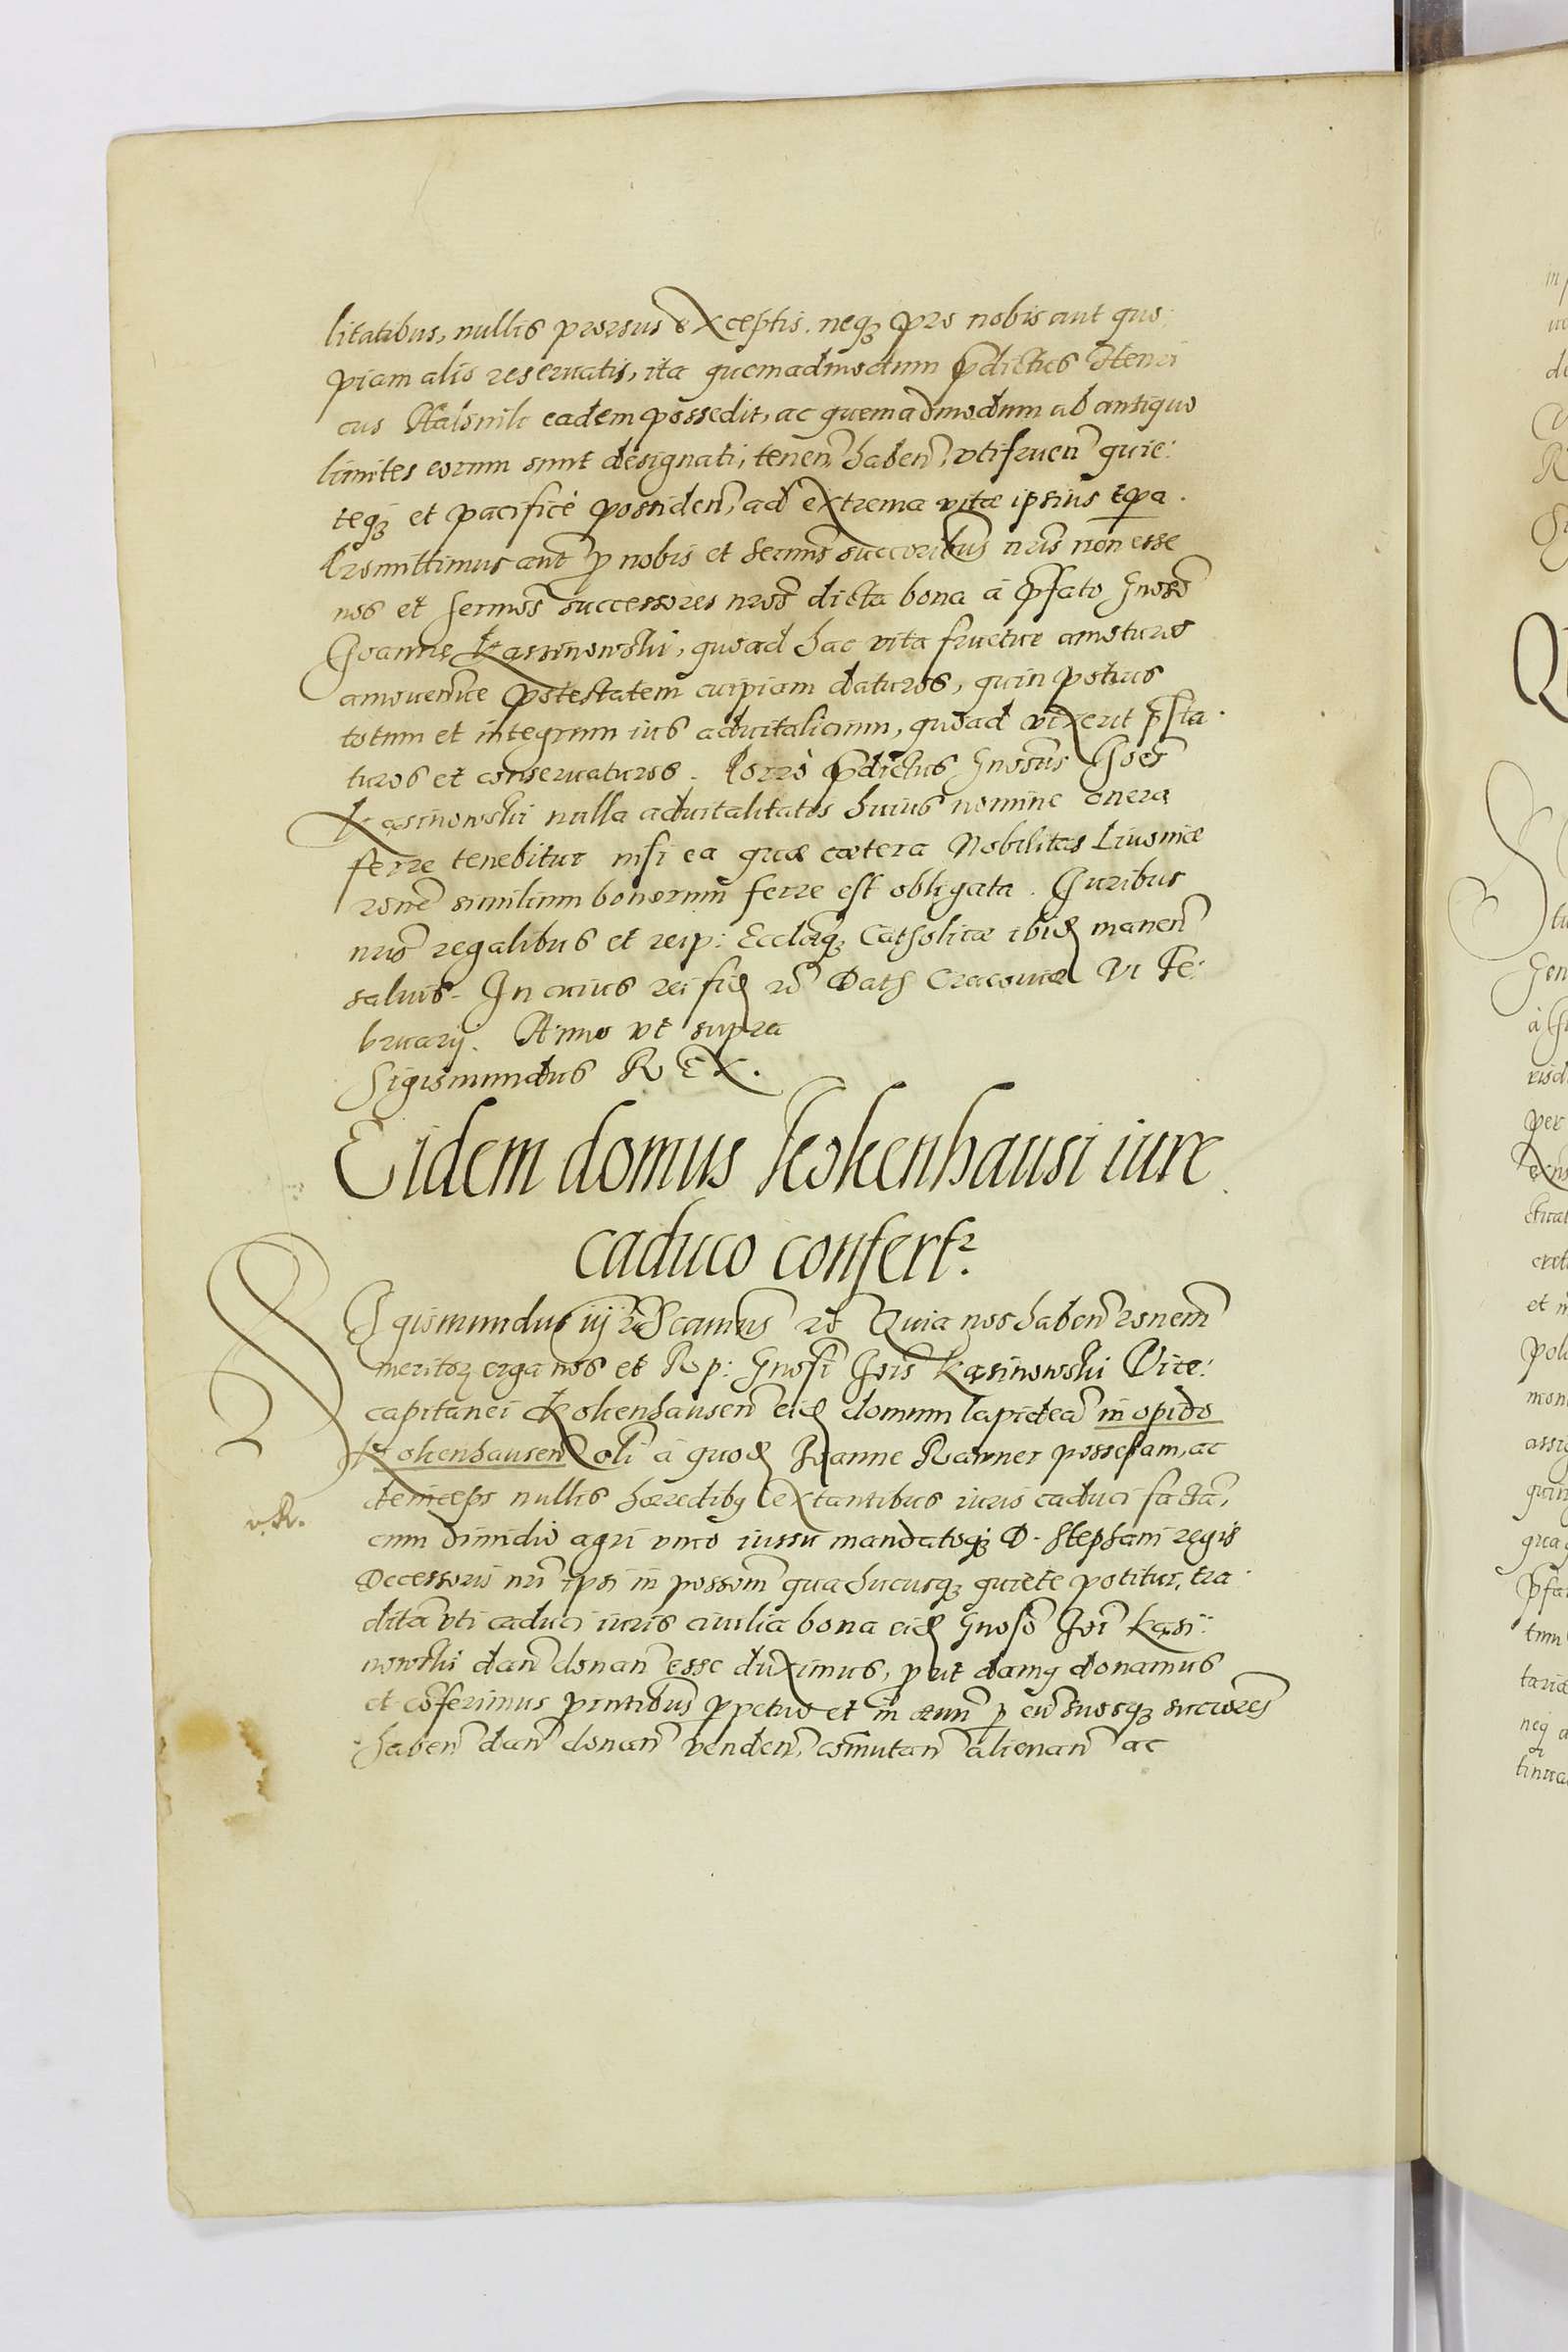 litatibus, nullis prorsus exceptis. neq3 pro nobis aut quo:
piam alio reseruatis, ita quemadmodum pdictus Henri
cus eadem possedit, ac quemadmodum ab antiquo
limites eorum sunt designati, tenen haben, vtifruen quie:
teq3 et pacificè possiden, ad extrema vitæ ipsius tpa.
Promittimus aut p nobis et Sermis succoribus nris non esse
nos et Sermos successores nros dicta bona à pfato Gnoso
Joanne Kassinowski, quoad hac vita fructur amoturos
amouendive potestatem cuipiam daturos, quin potius
totum et integrum ius aduitalicium, quoad vixerit psta
turos et conseruaturos. Porrò pdictus Gnosus Joes
Kasinowski nulla aduitalitatis huius nomine onera
ferre tenebitur nisi ea quæ cætera Nobilitas Liuoniæ
rone similium bonorum ferre est obligata. Juribus
nris regalibus et reip: Ecclæq3 Catholicæ ibid manen
saluis. In cuius rei fid Dat Cracouiæ VI Fe:
bruarij. Anno vt supra
Sigismundus REX.
Eidem domus Kokenhausi iure
caduco confertr.
Sigismundus iij Quia nos haben ronem
meritor erga nos et Rp: Gnosi Jois Kasinowski Vice:
capitanei Kokenhausen eid domum lapidea in opido
Kokenhausen oli à quod Joanne Rawner possessam, ac
deinceps nullis hæredibq extantibus iuris caduci facta,
cum dimidio agri vnco iussu mandatoq3 D. Stephani regis
Decessoris nri ipsi in possom qua hucusq3 quiete potitur, tra
dita vti caduci iuris ciuilia bona eid Gnoso Joi Kasi:
nowski dan donan esse duximus, put damq donamus
et coferimus pntibus ppetuo et in æuu p eu suosq3 succores
haben dan donan venden, comutan alienan ac
v. R.